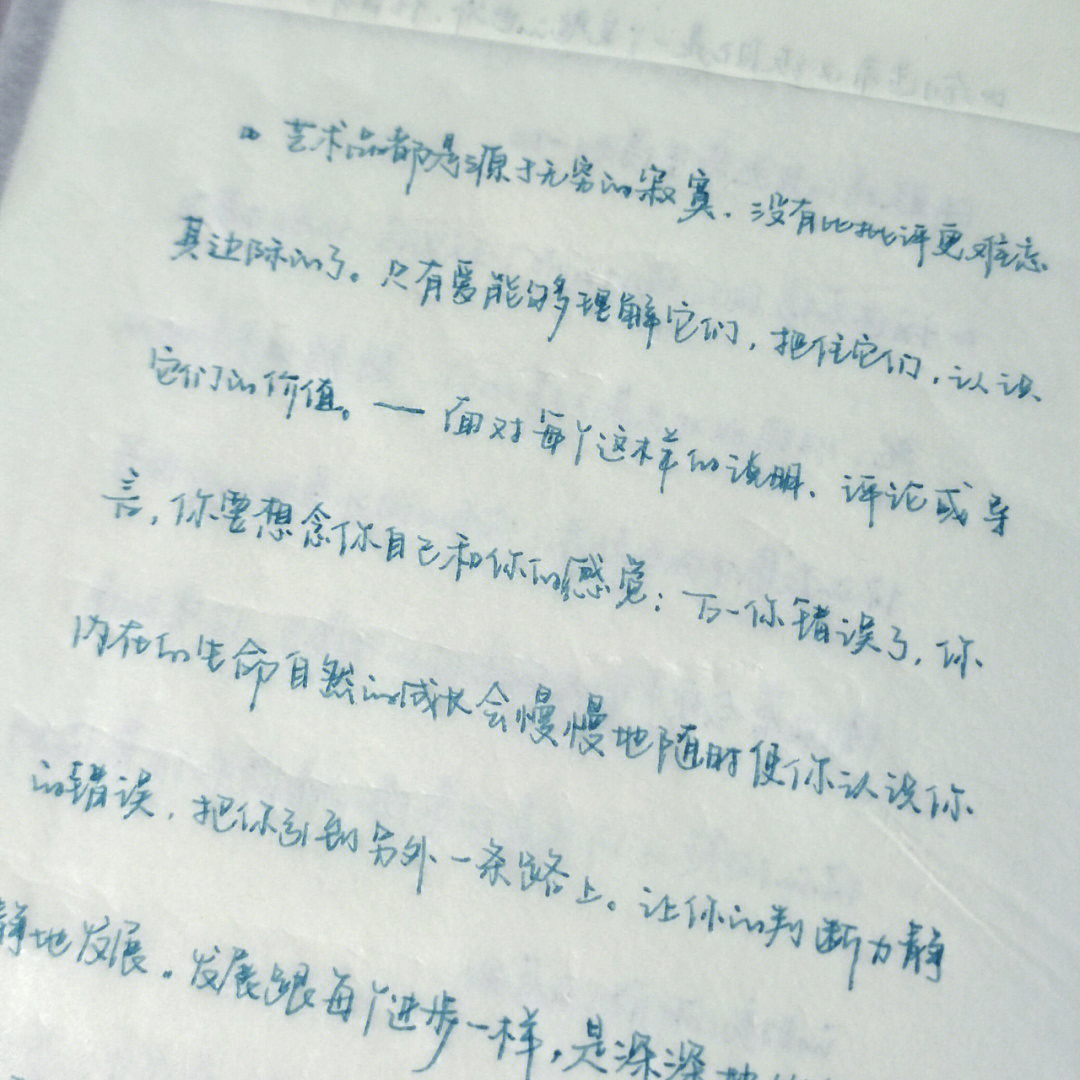 艺术品都是源于无穷的寂寞、没有比批评更难忘
其边际的了。只有爱能够理解它们，把住它们，认识
它们的价值。—面对每个这样的说明、评论或导
言，你要想念你自己和你的感觉；万一你错误了，你
内在的生命自然的成长会慢慢地随时使你认识你
的错误，把你引到另外一条路上。让你的判断力静
静地发展。发展跟每个进步一样，是深深地